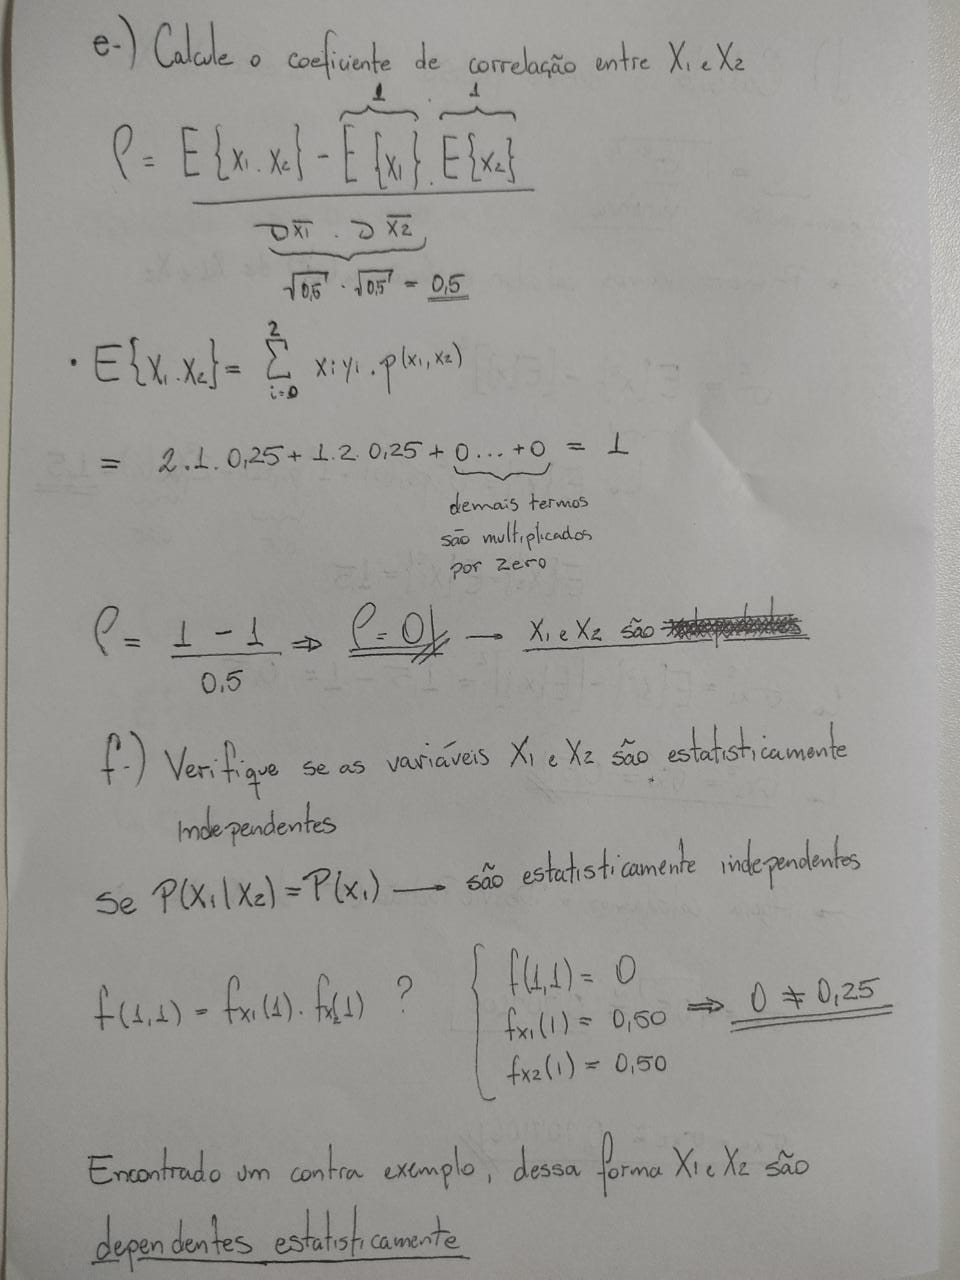 e-) Calcule o coeficiente de correlação entre X₁ e X₂
1 . 1
ρ = E{x₁.x₂} - E{x₁}.E{x₂}
σx̄1 . σx̄2
√0,5 . √0,5 = 0,5
• E{x₁.x₂} = 2 Σ i=0 xiyi.p(x₁,x₂)
= 2.1.0,25 + 1.2.0,25 + 0... +0 = 1
demais termos
são multiplicados
por zero
ρ = 1 - 1 / 0,5 ⇒ ρ = 0 → X₁ e X₂ são
f-) Verifique se as variáveis X₁ e X₂ são estatisticamente
independentes
Se P(X₁|X₂) = P(x₁) → são estatisticamente independentes
f(1,1) = fx₁(1).fx₂(1) ?
f(1,1) = 0
fx₁(1) = 0,50 ⇒ 0 ≠ 0,25
fx2(1) = 0,50
Encontrado um contra exemplo, dessa forma X₁ e X₂ são
dependentes estatisticamente